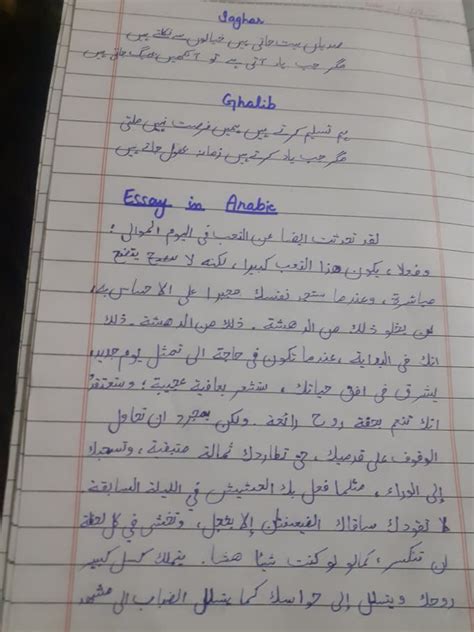 Jaghar
صدیاں بیت جاتی ہیں خیالوں سے نکلتے ہیں
مگر جب یاد آتی ہے تو آنکھیں بھیگ جاتی ہیں
Ghalib
ہم تسلیم کرتے ہیں ہمیں فرصت نہیں ملتی
مگر جب یاد کرتے ہیں زمانہ بھول جاتے ہیں
Essay in Arabic
لقد تحدثت ايضا عن التعب فى اليوم الموالى؛
وفعلا، يكون هذا التعب كبيرا، لكنه لا يتضح
مباشرة، وعندما ستجد نفسك مجبرا على الاحساس به،
لن يخلو ذلك من الدهشة. ذلك من الدهشة. ذلك
انك فى البداية، عندما تكون فى حاجة الى تمثل يوم جديد
يشرق فى افق حياتك، ستشعر بعافية عجيبة؛ وستعتقد
انك تنعم بخفة روح رائعة. ولكن بمجرد ان تحاول
الوقوف على قدميك، حتى تطاردك ثمالة متبقية، وتسحبك
إلى الوراء، مثلما فعل بك الحشيش فى الليلة السابقة
لا تقودك ساقاك الضعيفتان إلا بخجل، وتخشى فى كل لحظة
ان تنكسر، كما لو كنت شيئا هشا. يتملك كسل كبير
روحك وينسلل إلى حواسك كما ينسلل الضباب الى مشهد